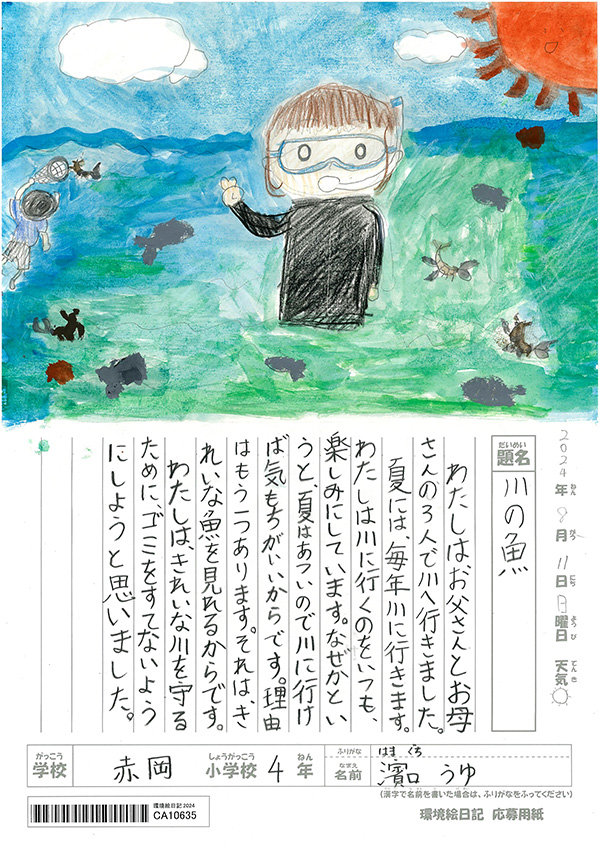 2024年8月11日日曜日 天気
ねん がつ にち ようび てんき
だいめい
題名
川の魚
わたしはお父さんとお母
さんの3人で川へ行きました。
夏には、毎年川に行きます。
わたしは川に行くのをいつも、
楽しみにしています。なぜかとい
うと、夏はあついので川に行け
ば気もちがいいからです。理由
はもう一つあります。それは、き
れいな魚を見れるからです。
わたしは、きれいな川を守る
ために、ゴミをすてないよう
にしようと思いました。
がっこう しょうがっこう ねん
学校 赤岡 小学校 4年
ふりがな はま ぐち
なまえ
名前 濱口 うゆ
(漢字で名前を書いた場合は、ふりがなをふってください)
環境絵日記2024
CA10635
環境絵日記 応募用紙